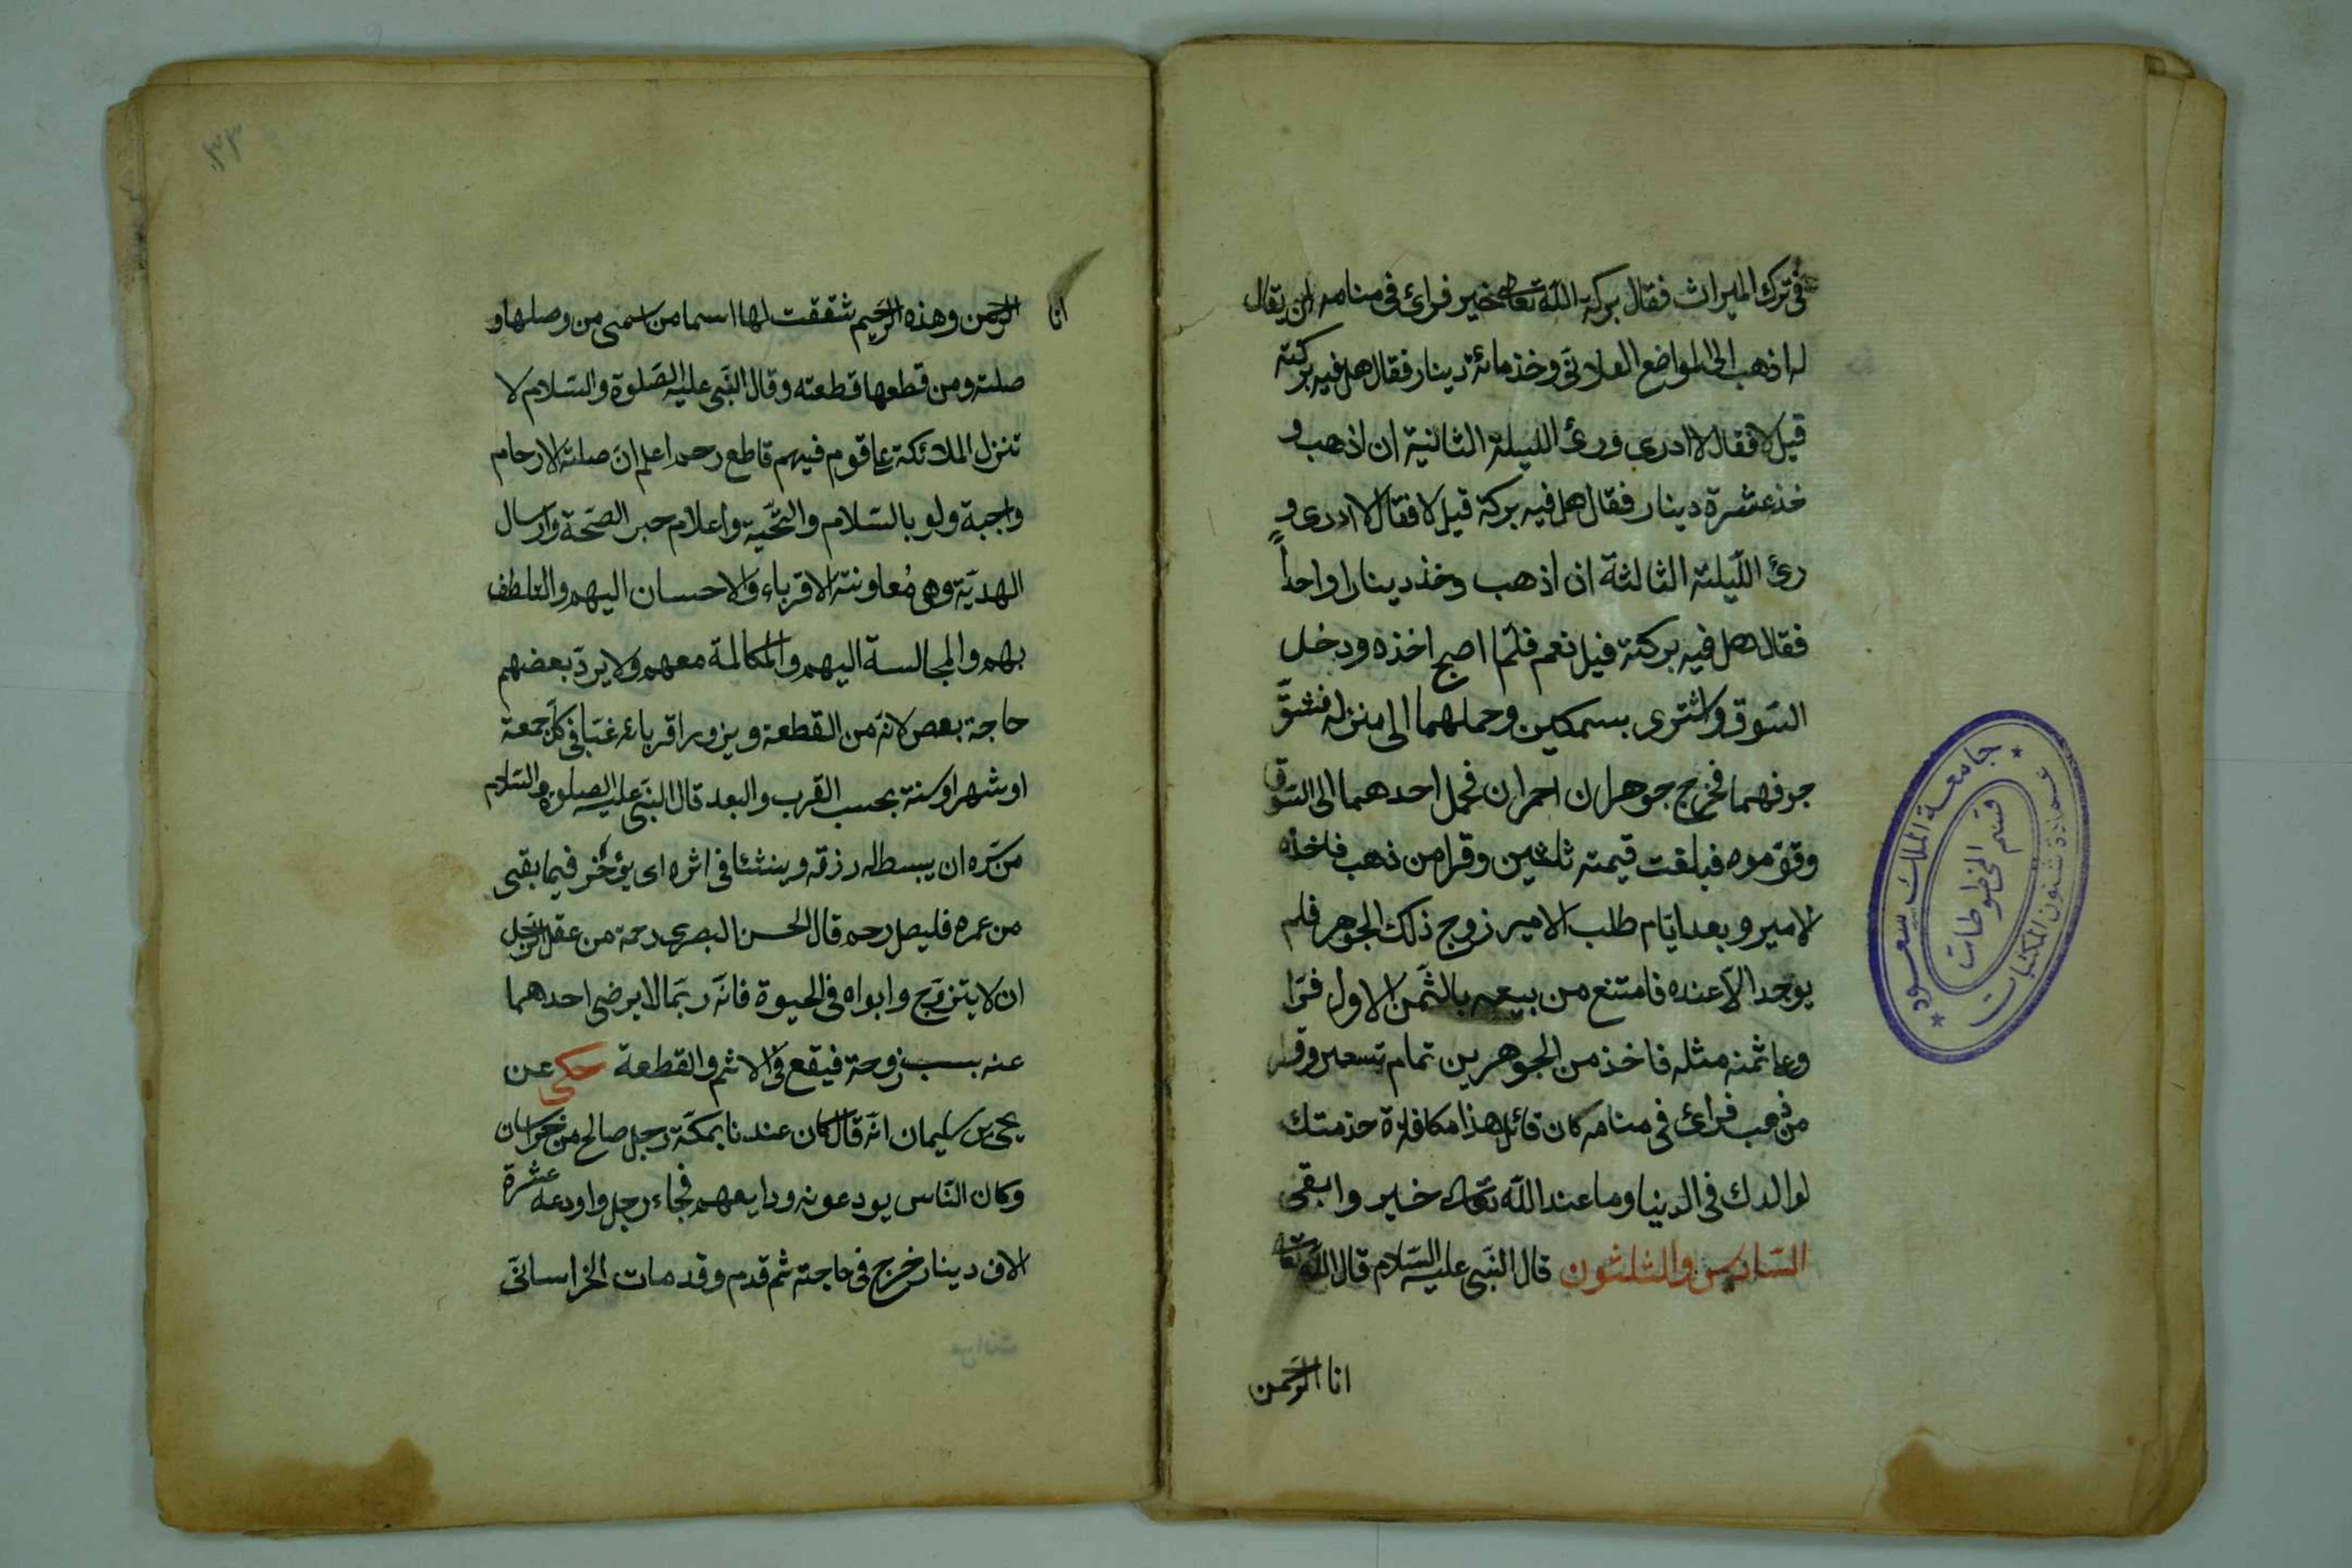 في ترك الميراث فقال بركة الله تعالى خير فرائ في منامه ان يقال
له اذهب الى المواضع الفلاني وخذ مائة دينار فقال هل فيه بركته
قيل لا فقال لا ادرى ورئ الليلة الثانية ان اذهب و
خذ عشرة دينار فقال هل فيه بركة قيل لا فقال لا ادرى و
رئ الليلة الثالثة ان اذهب وخذ دينارا واحداً
فقال هل فيه بركته قيل نعم فلما اصبح اخذه ودخل
السّوق واشترى بسمكين وحملهما الى منزله فشقّ
جوفهما فخرج جوهران احمران فحمل احدهما الى السّوق
وقوّموه فبلغت قيمته ثلثين وقرا من ذهب فاخذه
الامير وبعد ايّام طلب الامير زوج ذلك الجوهر فلم
يوجد الّا عنده فامتنع من بيعه بالثّمن الاول فزا
وعلى ثمنه مثله فاخذ من الجوهرين تمام تسعين وقرا
من ذهب فرائ في منامه كان قائل هذا مكافاة خذمتك
لوالدك في الدنيا وما عند الله تعالى خير وابقى
السّادس والثلثون قال النّبي عليه السّلام قال الله تعالى
انا الرّحمن
٣٣
انا
الرّحمن وهذه الرّحيم شققت لها اسما من اسمى من وصلها و
صلته ومن قطعها قطعته وقال النّبى عليه الصّلوة والسّلام لا
تنزل الملائكة على قوم فيهم قاطع رحم اعلم انّ صلة الارحام
واجبة ولو بالسّلام والتّحيّة واعلام خبر الصّحة وارسال
الهديّة وهى مُعاونته الاقرباء والاحسان اليهم والتلطف
بهم والمجالسة اليهم والمكالمة معهم ولا يردّ بعضهم
حاجة بعض لانّه من القطعة ويزور اقربائه غبّا في كلّ جمعة
او شهر او سنة بحسب القرب والبعد قال النّبي عليه الصلوة والسّلام
من سّره ان يبسط له رزقه وينشئا في اثره اى يؤخّر فيما بقى
من عمره فليصل رحمه قال الحسن البصرى رحمة من عقل الرّجل
ان لا يتزوّج وابواه في الحيوة فانّه ربّما لا يرضى احدهما
عنه بسبب زوجة فيقع في الاثم والقطعة حكى عن
يحيى بن سليمان انّه قال كان عندنا بمكّة رجل صالح من خراسان
وكان النّاس يودعونه ودايعهم فجاء رجل واودعه عشرة
الاف دينار خرج في حاجته ثم قدم وقد مات الخراسانى
جامعة الملك سعود
عمادة شئون المكتبات
قسم المخطوطات